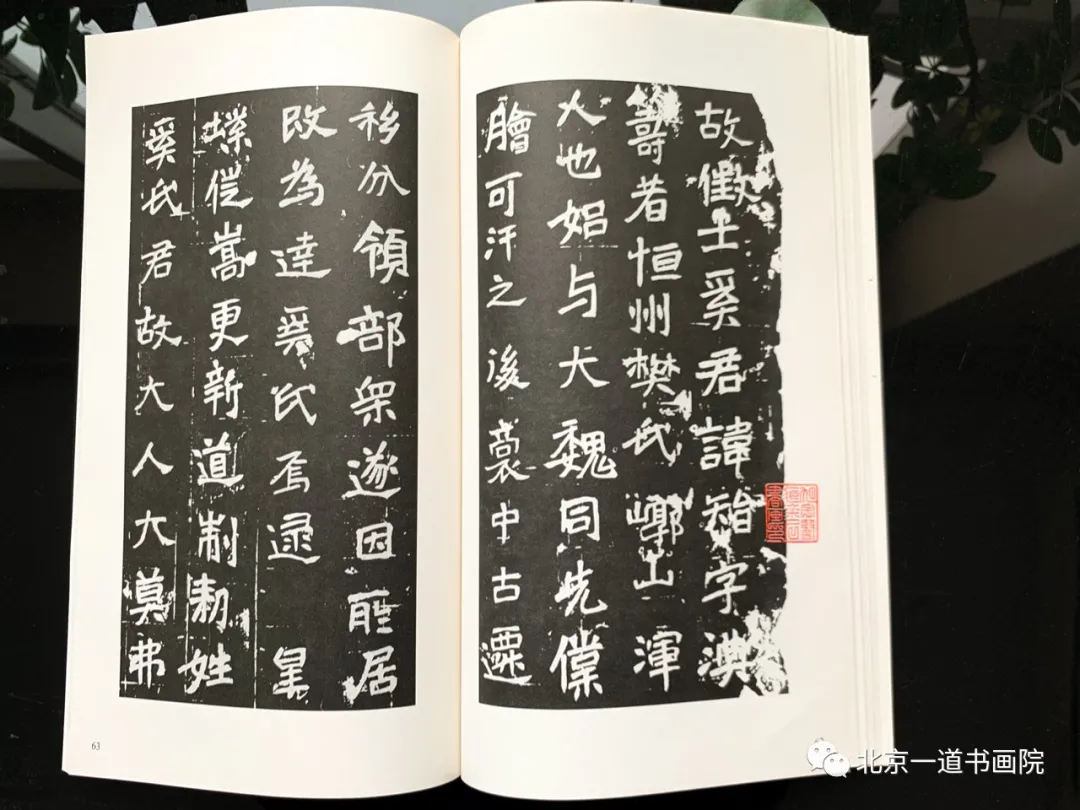 故徵士奚君諱智字淟
籌者恒州樊氏崞山渾
人也始与大魏同先僕
膾可汗之後裔中古遷
移分領部衆遂因所居
改為達奚氏焉逮皇
業徙嵩更新道制勑姓
奚氏君故大人大莫弗
63
北京一道书画院